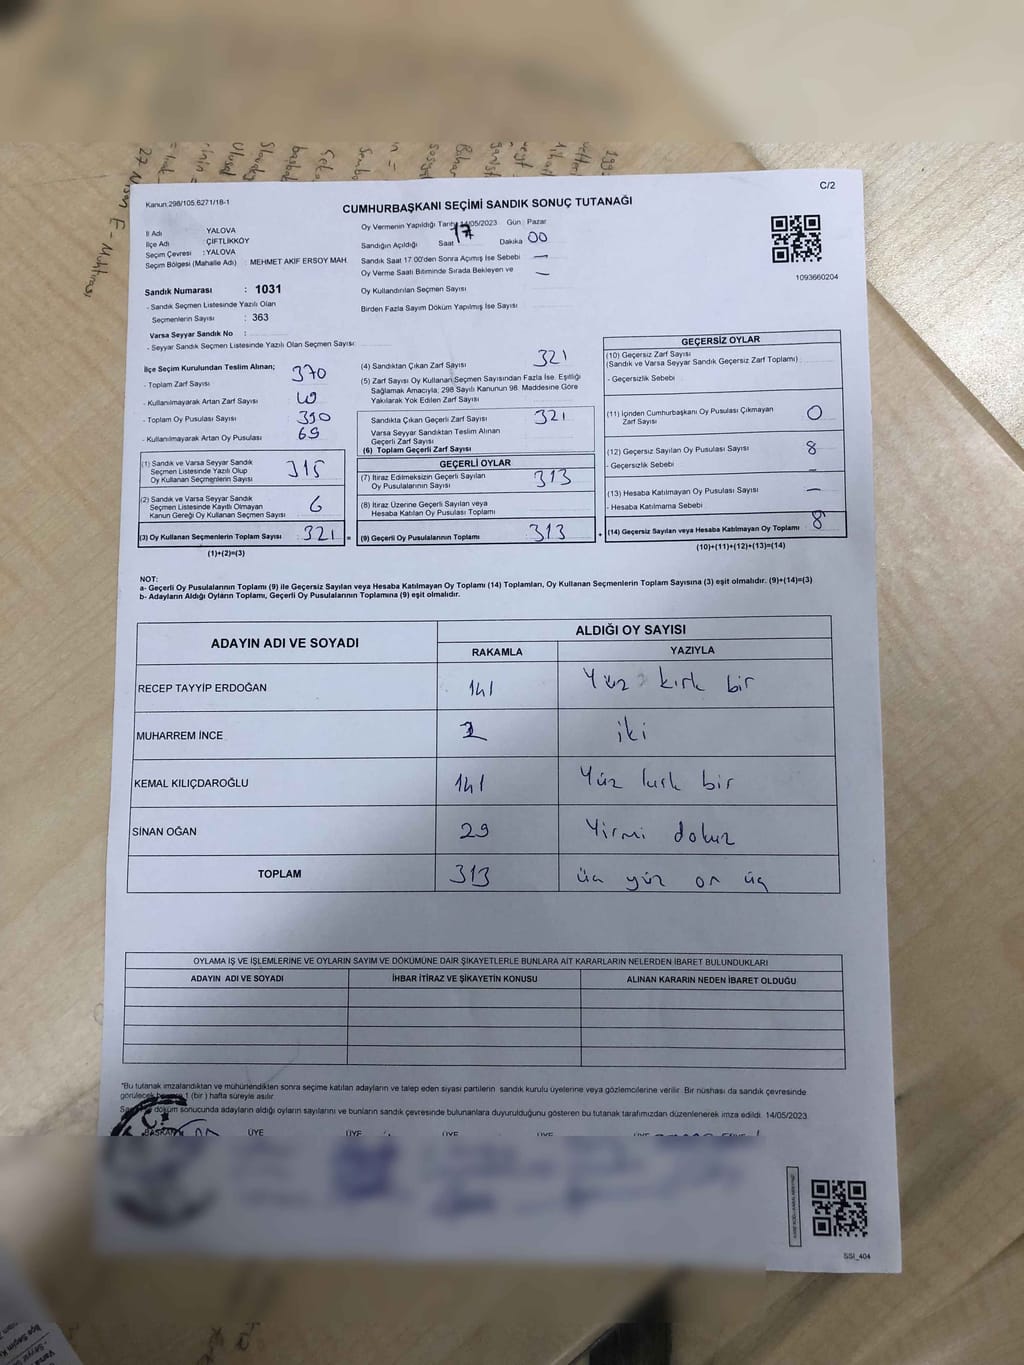 C/2
Kanun:298/105,6271/18-1
CUMHURBAŞKANI SEÇİMİ SANDIK SONUÇ TUTANAĞI
İl Adı YALOVA
İlçe Adı : ÇİFTLİKKÖY
Seçim Çevresi : YALOVA
Seçim Bölgesi (Mahalle Adı) : MEHMET AKİF ERSOY MAH.
Sandık Numarası : 1031
- Sandık Seçmen Listesinde Yazılı Olan
Seçmenlerin Sayısı : 363
Varsa Seyyar Sandık No :
- Seyyar Sandık Seçmen Listesinde Yazılı Olan Seçmen Sayısı:
Oy Vermenin Yapıldığı Tarih: 14/05/2023 Gün : Pazar
Sandığın Açıldığı Saat 17 Dakika 00
Sandık Saat 17:00'den Sonra Açımış İse Sebebi —
Oy Verme Saati Bitiminde Sırada Bekleyen ve —
Oy Kullandırılan Seçmen Sayısı
Birden Fazla Sayım Döküm Yapılmış İse Sayısı
1093660204
İlçe Seçim Kurulundan Teslim Alınan;
- Toplam Zarf Sayısı 370
- Kullanılmayarak Artan Zarf Sayısı
- Toplam Oy Pusulası Sayısı 390
- Kullanılmayarak Artan Oy Pusulası 69
(1) Sandık ve Varsa Seyyar Sandık
Seçmen Listesinde Yazılı Olup
Oy Kullanan Seçmenlerin Sayısı 315
(2) Sandık ve Varsa Seyyar Sandık
Seçmen Listesinde Kayıtlı Olmayan
Kanun Gereği Oy Kullanan Seçmen Sayısı 6
(3) Oy Kullanan Seçmenlerin Toplam Sayısı : 321 =
(1)+(2)=(3)
(4) Sandıktan Çıkan Zarf Sayısı 321
(5) Zarf Sayısı Oy Kullanan Seçmen Sayısından Fazla İse, Eşitliği
Sağlamak Amacıyla; 298 Sayılı Kanunun 98. Maddesine Göre
Yakılarak Yok Edilen Zarf Sayısı
Sandıkta Çıkan Geçerli Zarf Sayısı 321
Varsa Seyyar Sandıktan Teslim Alınan
Geçerli Zarf Sayısı
(6) Toplam Geçerli Zarf Sayısı
GEÇERLİ OYLAR
(7) İtiraz Edilmeksizin Geçerli Sayılan
Oy Pusulalarının Sayısı 313
(8) İtiraz Üzerine Geçerli Sayılan veya
Hesaba Katılan Oy Pusulası Toplamı
(9) Geçerli Oy Pusulalarının Toplamı 313 +
GEÇERSİZ OYLAR
(10) Geçersiz Zarf Sayısı
(Sandık ve Varsa Seyyar Sandık Geçersiz Zarf Toplamı)
- Geçersizlik Sebebi
(11) İçinden Cumhurbaşkanı Oy Pusulası Çıkmayan
Zarf Sayısı 0
(12) Geçersiz Sayılan Oy Pusulası Sayısı 8
- Geçersizlik Sebebi —
(13) Hesaba Katılmayan Oy Pusulası Sayısı —
- Hesaba Katılmama Sebebi
(14) Geçersiz Sayılan veya Hesaba Katılmayan Oy Toplamı 8
(10)+(11)+(12)+(13)=(14)
NOT:
a- Geçerli Oy Pusulalarının Toplamı (9) ile Geçersiz Sayılan veya Hesaba Katılmayan Oy Toplamı (14) Toplamları, Oy Kullanan Seçmenlerin Toplam Sayısına (3) eşit olmalıdır. (9)+(14)=(3)
b- Adayların Aldığı Oyların Toplamı, Geçerli Oy Pusulalarının Toplamına (9) eşit olmalıdır.
ADAYIN ADI VE SOYADI ALDIĞI OY SAYISI
RAKAMLA YAZIYLA
RECEP TAYYİP ERDOĞAN 141 Yüz kırk bir
MUHARREM İNCE 2 iki
KEMAL KILIÇDAROĞLU 141 Yüz kırk bir
SİNAN OĞAN 29 Yirmi dokuz
TOPLAM 313 üç yüz on üç
OYLAMA İŞ VE İŞLEMLERİNE VE OYLARIN SAYIM VE DÖKÜMÜNE DAİR ŞİKAYETLERLE BUNLARA AİT KARARLARIN NELERDEN İBARET BULUNDUKLARI
ADAYIN ADI VE SOYADI İHBAR İTİRAZ VE ŞİKAYETİN KONUSU ALINAN KARARIN NEDEN İBARET OLDUĞU
"Bu tutanak imzalandıktan ve mühürlendikten sonra seçime katılan adayların ve talep eden siyasi partilerin sandık kurulu üyelerine veya gözlemcilerine verilir. Bir nüshası da sandık çevresinde
görülecek 1 (bir) hafta süreyle asılır.
döküm sonucunda adayların aldığı oyların sayılarını ve bunların sandık çevresinde bulunanlara duyurulduğunu gösteren bu tutanak tarafımızdan düzenlenerek imza edildi. 14/05/2023
BAŞKAN ÜYE ÜYE ÜYE ÜYE
SSİ_404